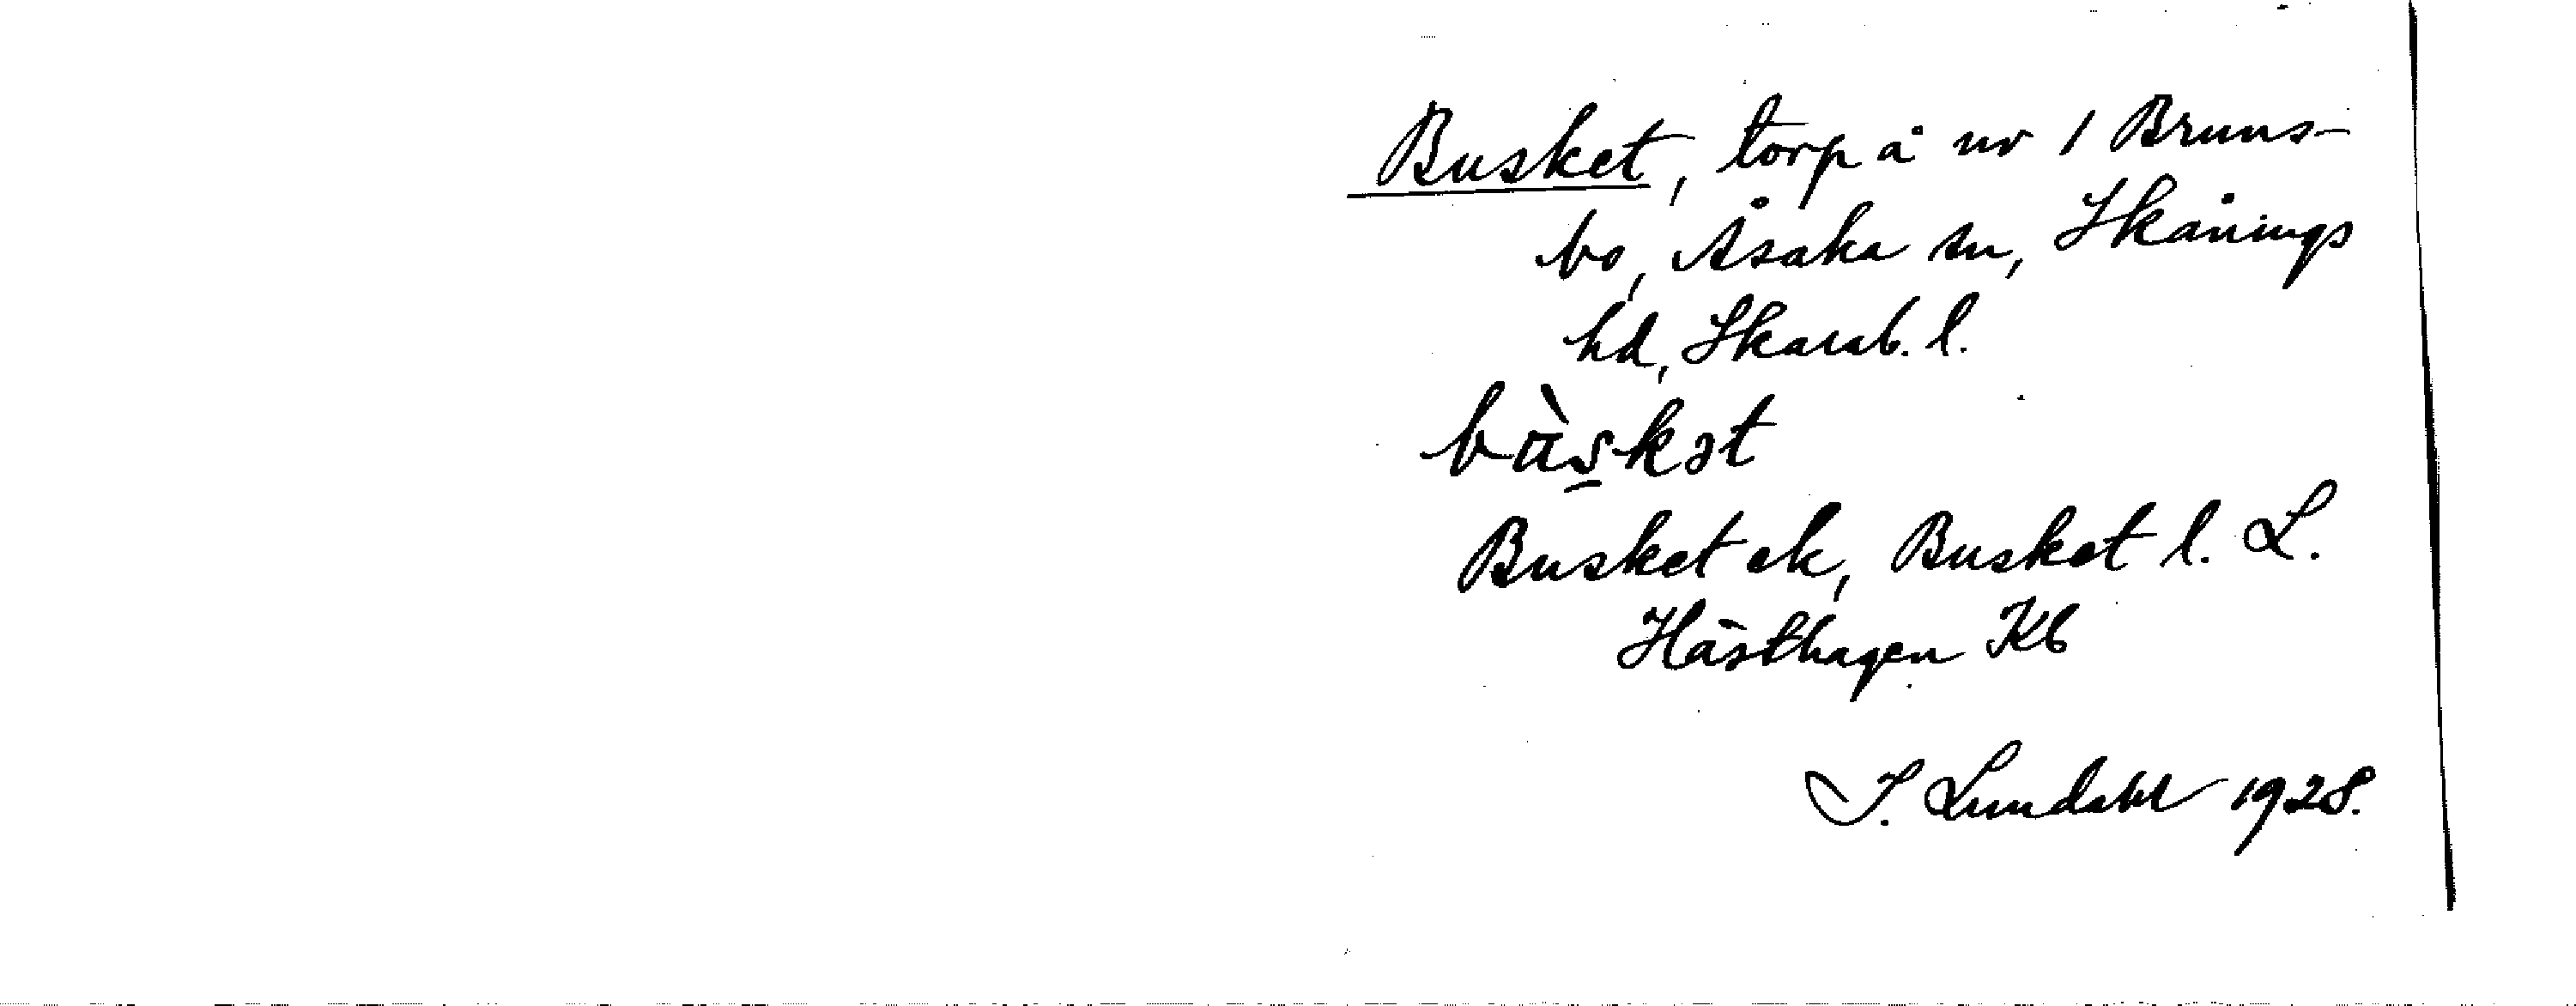 Busket, torp å nr 1 Bruns-
bo, Åsaka sn, Skånings
hd, Skarab. l.
bùskət
Busket ek, Busket l. L.
Hästhagen Kb
I. Lundahl 1928.